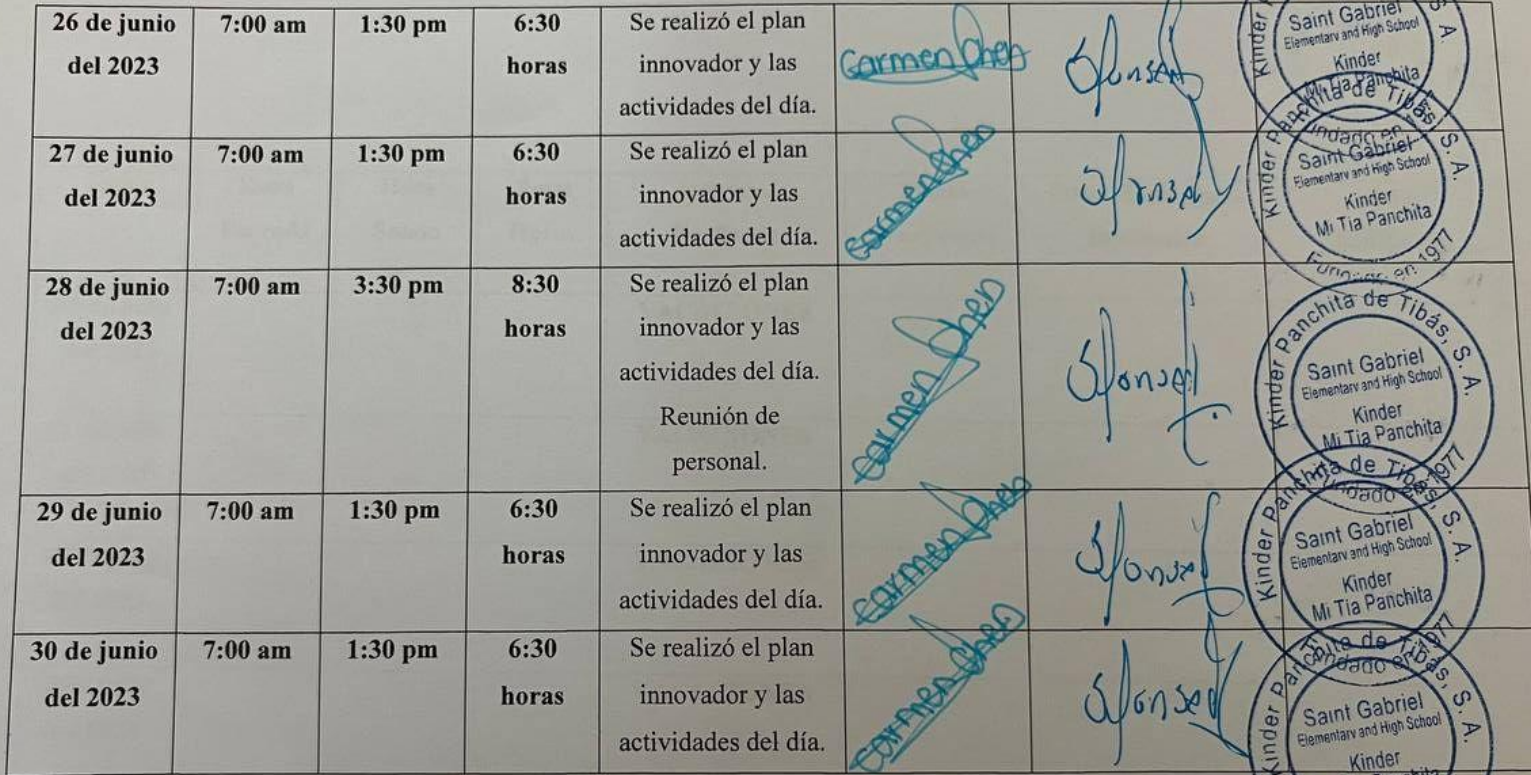 26 de junio del 2023 7:00 am 1:30 pm 6:30 horas Se realizó el plan innovador y las actividades del día. Carmen Chen
Saint Gabriel
Elementary and High School
Kinder
Mi Tia Panchita
27 de junio del 2023 7:00 am 1:30 pm 6:30 horas Se realizó el plan innovador y las actividades del día. Carmen Chen
Kinder Panchita de Tibás, S. A.
Saint Gabriel
Elementary and High School
Kinder
Mi Tia Panchita
Fundado en 1977
28 de junio del 2023 7:00 am 3:30 pm 8:30 horas Se realizó el plan innovador y las actividades del día. Reunión de personal. Carmen Chen
Kinder Panchita de Tibás, S. A.
Saint Gabriel
Elementary and High School
Kinder
Mi Tia Panchita
Fundado en 1977
29 de junio del 2023 7:00 am 1:30 pm 6:30 horas Se realizó el plan innovador y las actividades del día. Carmen Chen
Kinder Panchita de Tibás, S. A.
Saint Gabriel
Elementary and High School
Kinder
Mi Tia Panchita
Fundado en 1977
30 de junio del 2023 7:00 am 1:30 pm 6:30 horas Se realizó el plan innovador y las actividades del día. Carmen Chen
Kinder Panchita de Tibás, S. A.
Saint Gabriel
Elementary and High School
Kinder